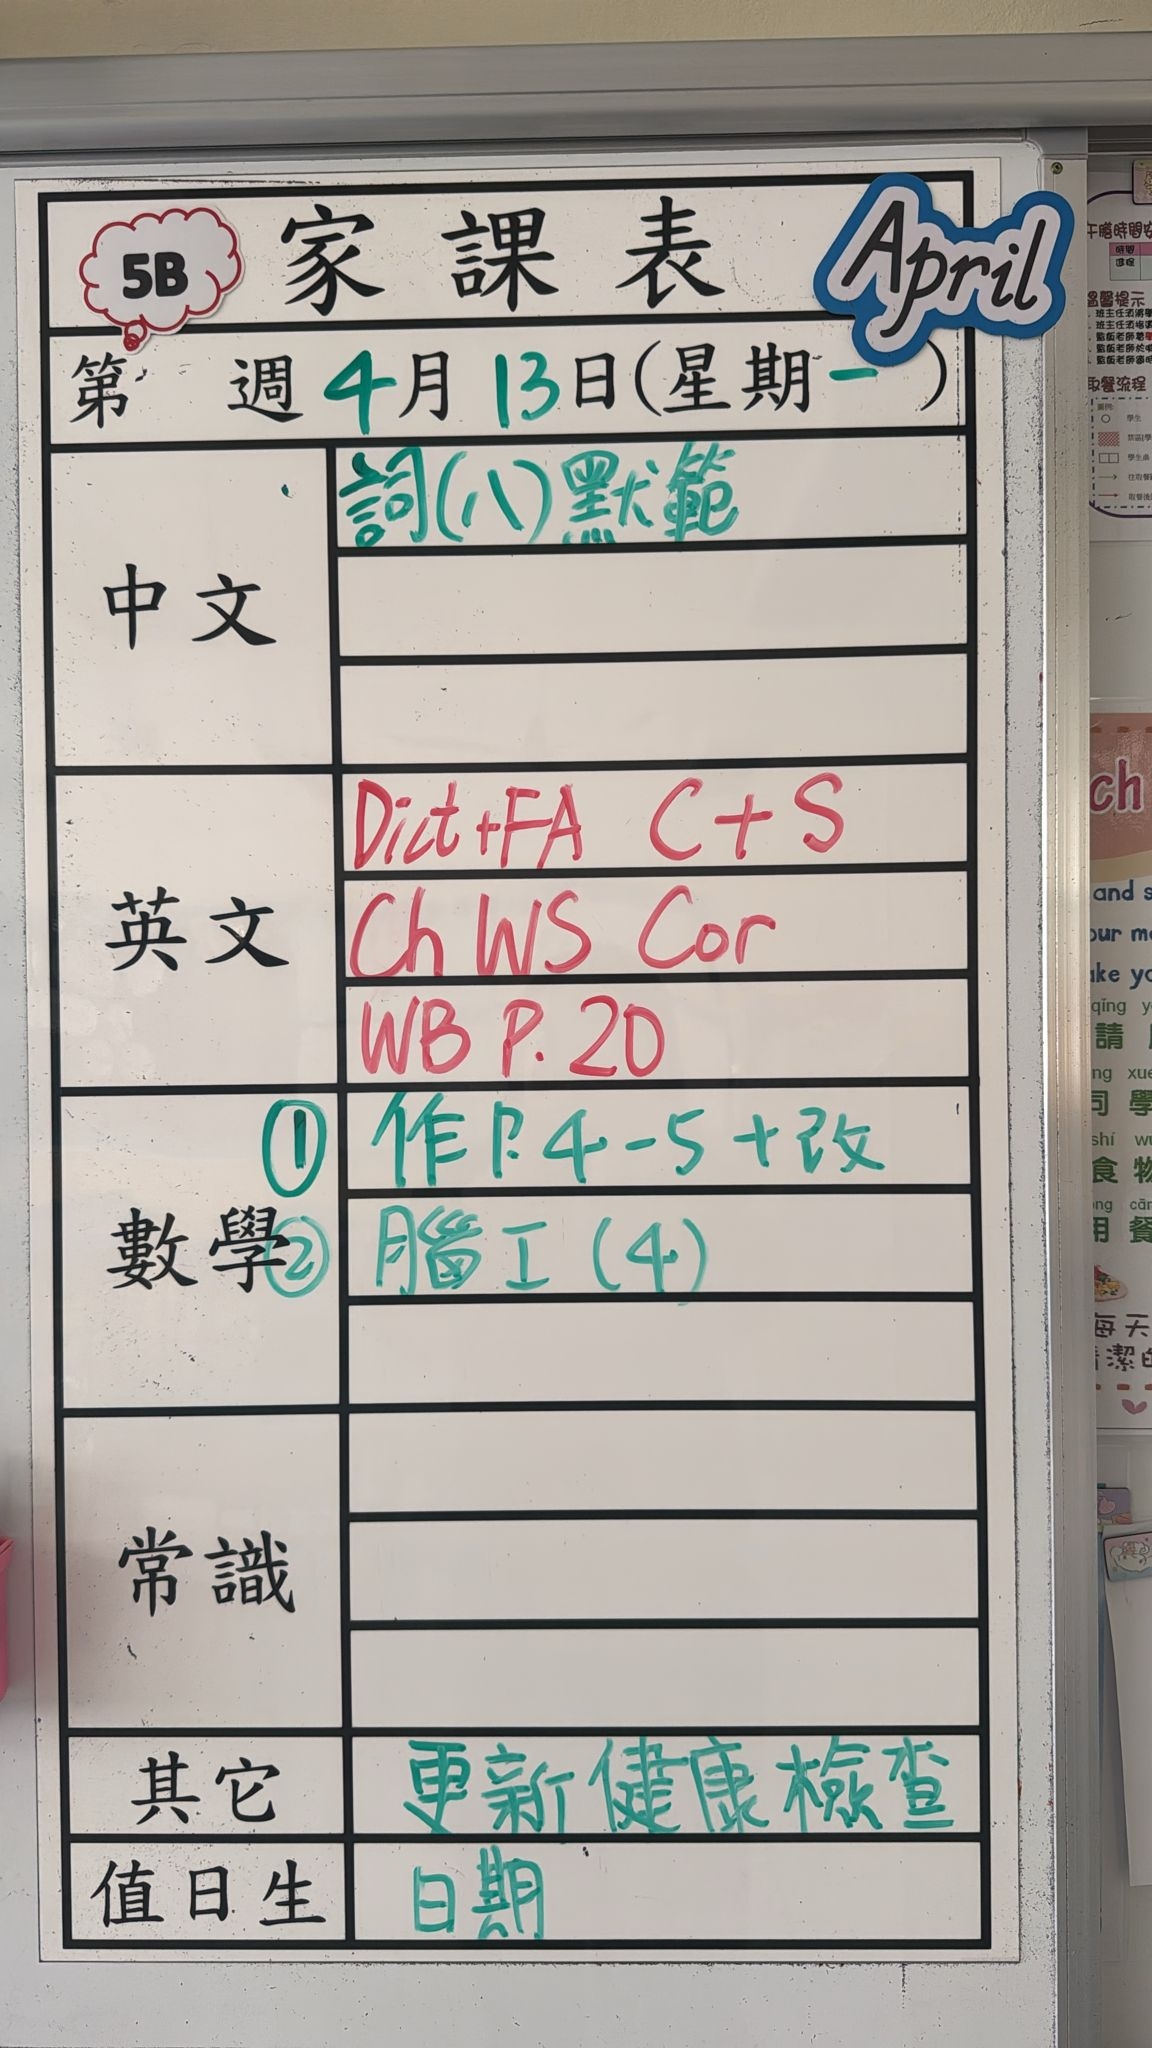 5B
家課表
April
第 週 4月 13日(星期一 )
中文
詞(八)默範
英文
Dict+FA C+S
Ch WS Cor
WB P. 20
數學
① 作P.4-5+改
② 腦工(4)
常識
其它
更新健康檢查
值日生
日期
午膳時間安
時間
溫馨提示
取餐流程
學生
ch
and s
our m
ake yo
qīng y
請
ng xue
同學
shí wu
食物
ong cān
用餐
每天
清潔的